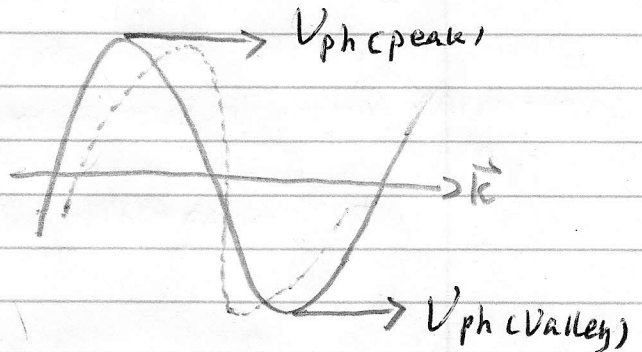 Vph(peak)
k⃗
Vph(Valley)